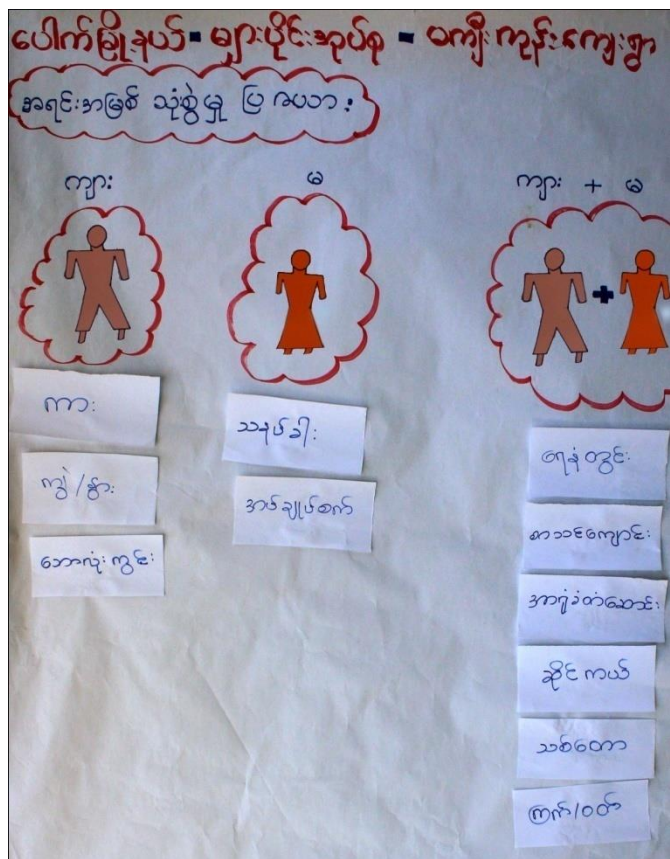 ပေါက်မြို့နယ် - များပိုင်းအုပ်စု - မကျီးကုန်းကျေးရွာ
အရင်းအမြစ် သုံးစွဲမှု ပြ ဇယား
ကျား
မ
ကျား + မ
ကား
ကျွဲ/နွား
ဘောလုံးကွင်း
သနပ်ခါး
အပ်ချုပ်စက်
ရေနံတွင်း
စာသင်ကျောင်း
အာရုံခံတံဆောင်း
ဆိုင်ကယ်
သစ်တော
ကြက်/ဝတ်